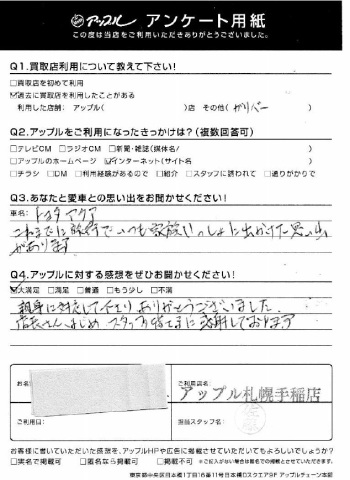 アップル アンケート用紙
この度は当店をご利用いただきありがとうございました。
Q1.買取店利用について教えて下さい!
□買取店を初めて利用
☑過去に買取店を利用したことがある
利用した店舗: アップル( )店 その他( ガリバー )
Q2.アップルをご利用になったきっかけは?(複数回答可)
□テレビCM □ラジオCM □新聞・雑誌(媒体名/ )
□アップルのホームページ ☑インターネット(サイト名 )
□チラシ □DM □利用経験があるので □紹介 □スタッフに誘われて □通りがかりで
Q3.あなたと愛車との思い出をお聞かせください!
車名: トヨタ アクア
これまでに旅行でいつも家族いっしょに出かけた思い出
があります
Q4.アップルに対する感想をぜひお聞かせください!
☑大満足 □満足 □普通 □もう少し □不満
親身に対応して下さりありがとうございました。
店長さんはじめ スタッフの皆さまに感謝しております
お名
ご利用店名:
アップル札幌手稲店
ご利用日:
担当スタッフ名:
お客様に書いていただいた感想を、アップルHPや広告に掲載させていただいてもよろしいでしょうか?
□実名で掲載可 □匿名なら掲載可 □掲載不可 ※ご記入がない場合は匿名での掲載とさせていただきます。
東京都中央区日本橋1丁目16番11号日本橋Dスクエア9F アップルチェーン本部